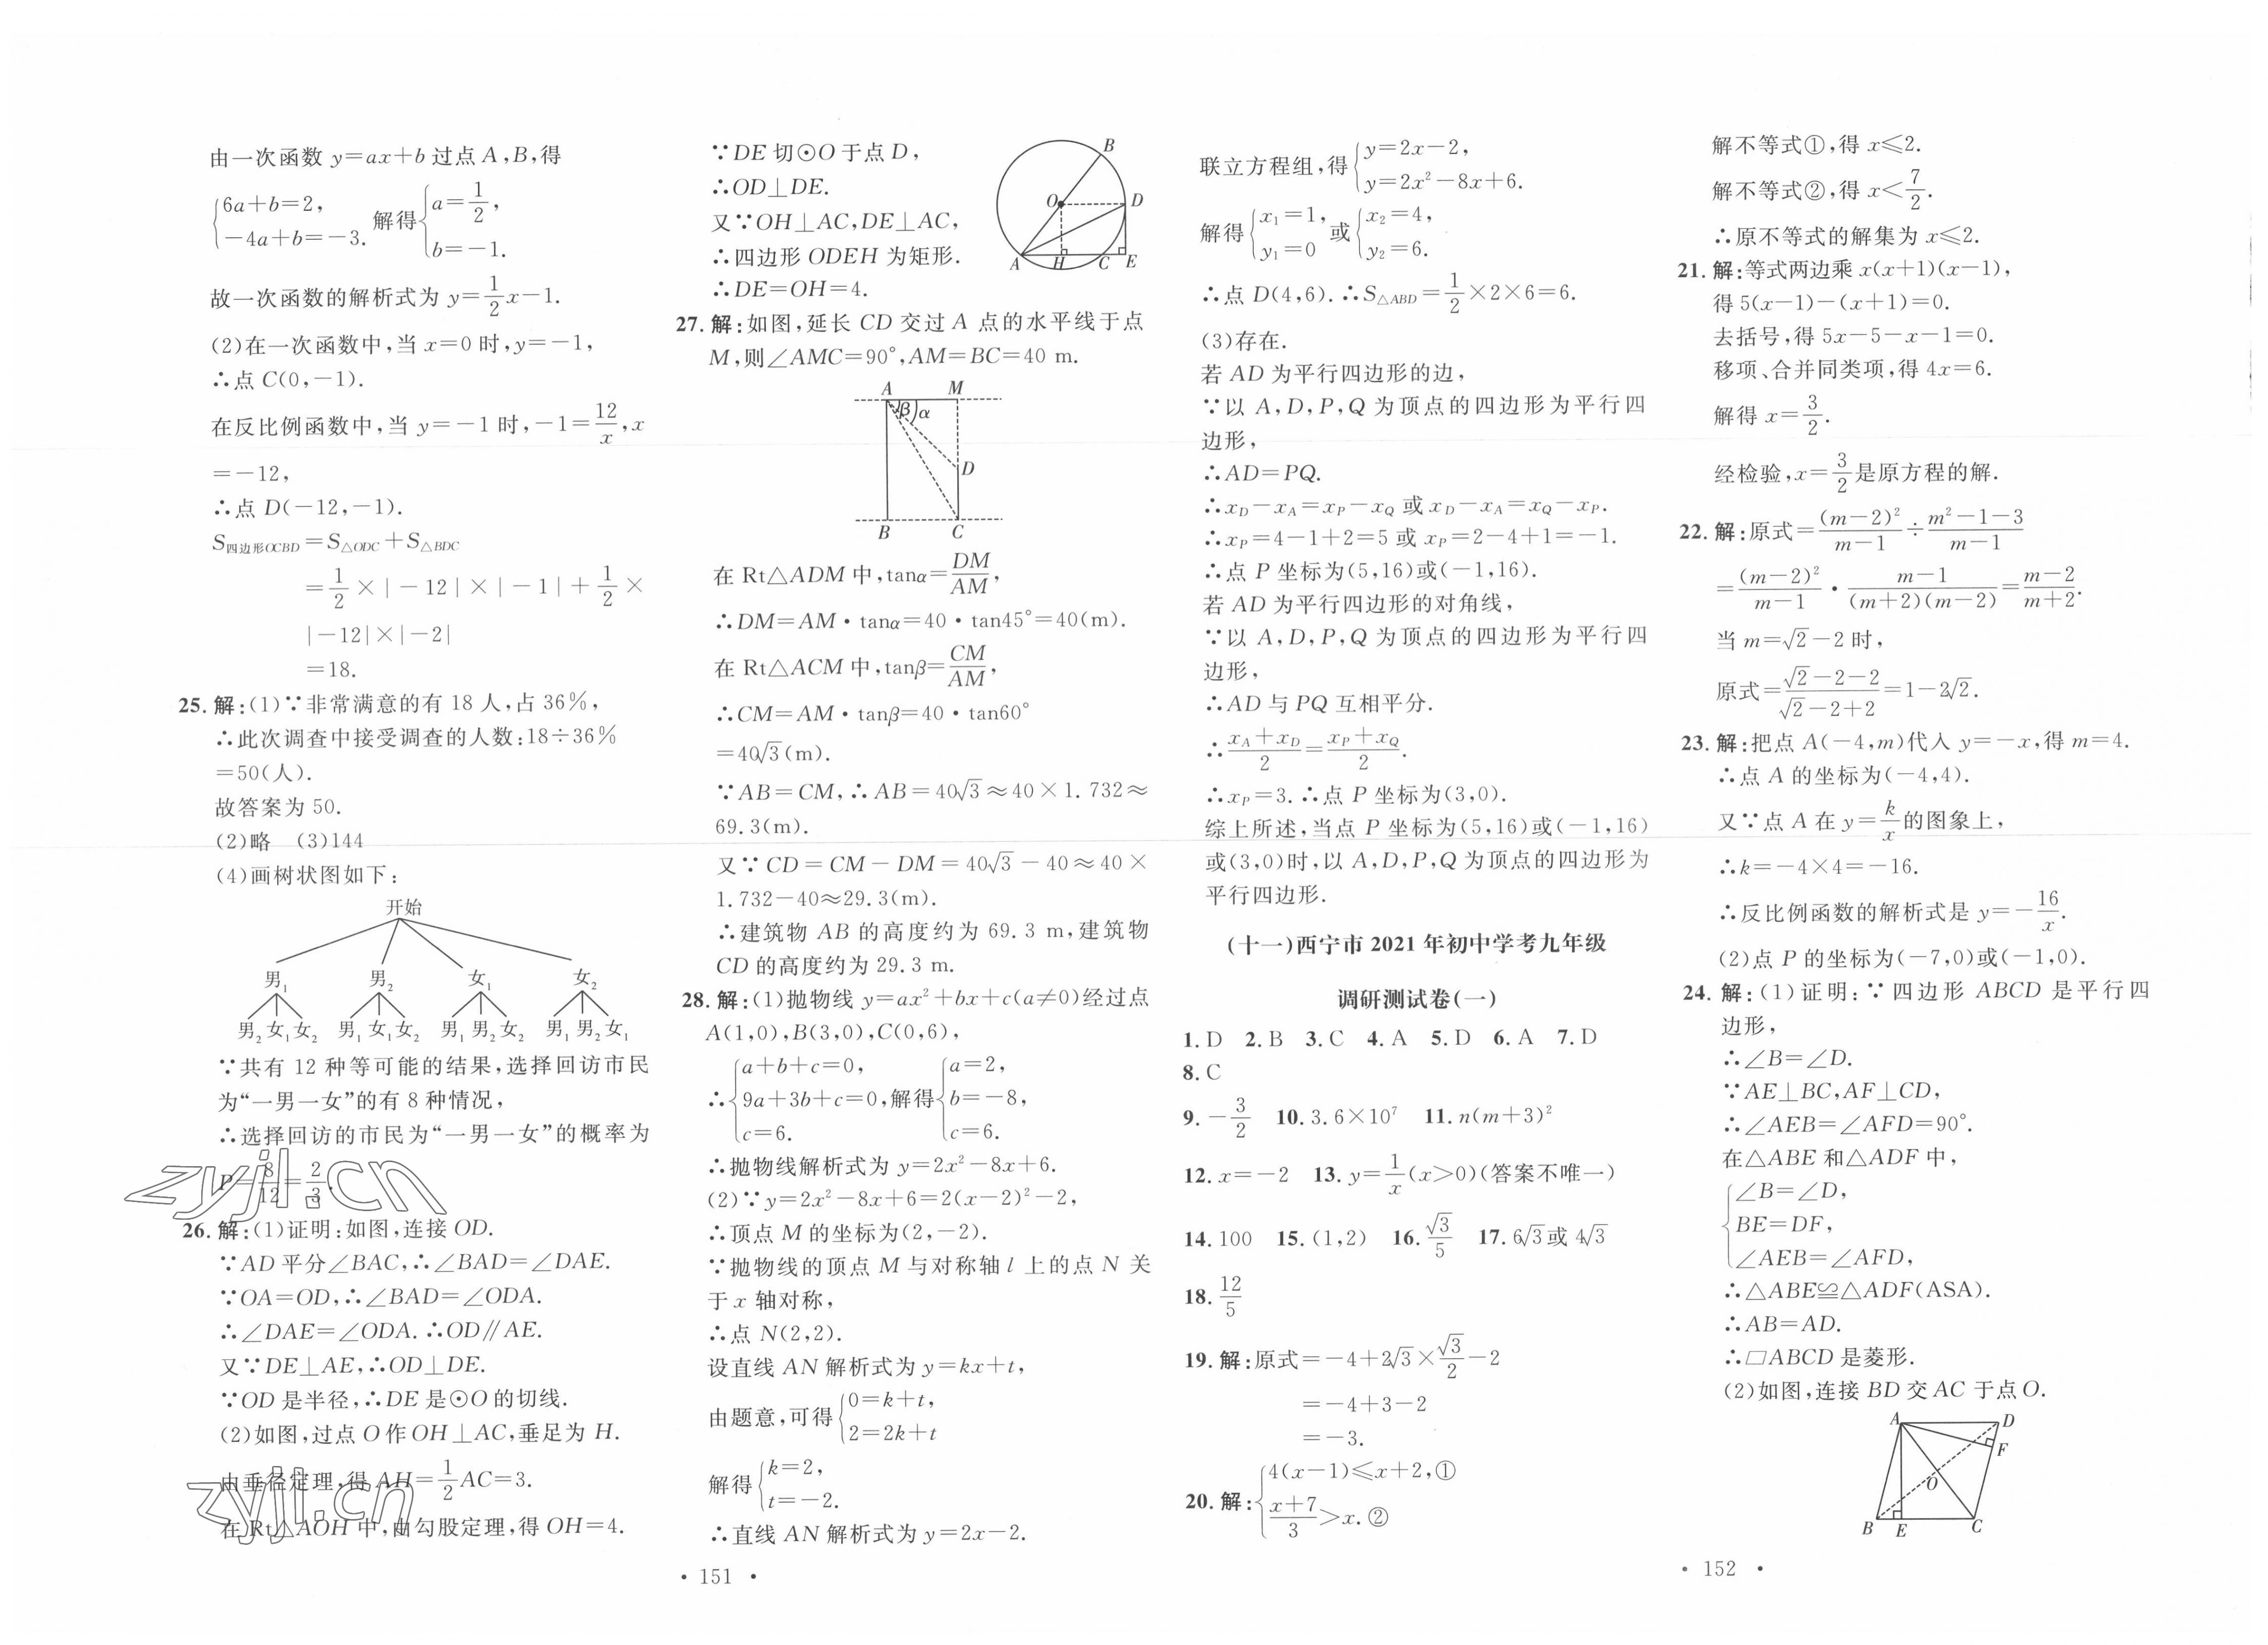 由一次函数 y=ax+b 过点 A,B,得
{6a+b=2, -4a+b=-3. 解得{a=1/2, b=-1.
故一次函数的解析式为 y=1/2x-1.
(2)在一次函数中,当 x=0 时,y=-1,
∴点 C(0,-1).
在反比例函数中,当 y=-1 时,-1=12/x,x
=-12,
∴点 D(-12,-1).
S四边形OCBD=S△ODC+S△BDC
=1/2×|-12|×|-1|+1/2×
|-12|×|-2|
=18.
25.解:(1)∵非常满意的有 18 人,占 36%,
∴此次调查中接受调查的人数:18÷36%
=50(人).
故答案为 50.
(2)略 (3)144
(4)画树状图如下:
开始
男₁ 男₂ 女₁ 女₂
男₂女₁女₂ 男₁女₁女₂ 男₁男₂女₂ 男₁男₂女₁
∵共有 12 种等可能的结果,选择回访市民
为“一男一女”的有 8 种情况,
∴选择回访的市民为“一男一女”的概率为
P=8/12=2/3.
26.解:(1)证明:如图,连接 OD.
∵AD 平分∠BAC,∴∠BAD=∠DAE.
∵OA=OD,∴∠BAD=∠ODA.
∴∠DAE=∠ODA.∴OD∥AE.
又∵DE⊥AE,∴OD⊥DE.
∵OD 是半径,∴DE 是⊙O 的切线.
(2)如图,过点 O 作 OH⊥AC,垂足为 H.
由垂径定理,得 AH=1/2AC=3.
在 Rt△AOH 中,由勾股定理,得 OH=4.
zyjl.cn
zyjl.cn
∵DE 切⊙O 于点 D,
∴OD⊥DE.
又∵OH⊥AC,DE⊥AC,
∴四边形 ODEH 为矩形.
∴DE=OH=4.
B
O D
A H C E
27.解:如图,延长 CD 交过 A 点的水平线于点
M,则∠AMC=90°,AM=BC=40 m.
A M
β α
D
B C
在 Rt△ADM 中,tanα=DM/AM,
∴DM=AM·tanα=40·tan45°=40(m).
在 Rt△ACM 中,tanβ=CM/AM,
∴CM=AM·tanβ=40·tan60°
=40√3(m).
∵AB=CM,∴AB=40√3≈40×1.732≈
69.3(m).
又∵CD=CM-DM=40√3-40≈40×
1.732-40≈29.3(m).
∴建筑物 AB 的高度约为 69.3 m,建筑物
CD 的高度约为 29.3 m.
28.解:(1)抛物线 y=ax²+bx+c(a≠0)经过点
A(1,0),B(3,0),C(0,6),
∴{a+b+c=0, 9a+3b+c=0, c=6. 解得{a=2, b=-8, c=6.
∴抛物线解析式为 y=2x²-8x+6.
(2)∵y=2x²-8x+6=2(x-2)²-2,
∴顶点 M 的坐标为(2,-2).
∵抛物线的顶点 M 与对称轴 l 上的点 N 关
于 x 轴对称,
∴点 N(2,2).
设直线 AN 解析式为 y=kx+t,
由题意,可得{0=k+t, 2=2k+t
解得{k=2, t=-2.
∴直线 AN 解析式为 y=2x-2.
· 151 ·
联立方程组,得{y=2x-2, y=2x²-8x+6.
解得{x₁=1, y₁=0 或{x₂=4, y₂=6.
∴点 D(4,6).∴S△ABD=1/2×2×6=6.
(3)存在.
若 AD 为平行四边形的边,
∵以 A,D,P,Q 为顶点的四边形为平行四
边形,
∴AD=PQ.
∴x_D-x_A=x_P-x_Q 或 x_D-x_A=x_Q-x_P.
∴x_P=4-1+2=5 或 x_P=2-4+1=-1.
∴点 P 坐标为(5,16)或(-1,16).
若 AD 为平行四边形的对角线,
∵以 A,D,P,Q 为顶点的四边形为平行四
边形,
∴AD 与 PQ 互相平分.
∴(x_A+x_D)/2=(x_P+x_Q)/2.
∴x_P=3.∴点 P 坐标为(3,0).
综上所述,当点 P 坐标为(5,16)或(-1,16)
或(3,0)时,以 A,D,P,Q 为顶点的四边形为
平行四边形.
(十一)西宁市 2021 年初中学考九年级
调研测试卷(一)
1.D 2.B 3.C 4.A 5.D 6.A 7.D
8.C
9.-3/2 10.3.6×10⁷ 11.n(m+3)²
12.x=-2 13.y=1/x(x>0)(答案不唯一)
14.100 15.(1,2) 16.√3/5 17.6√3或4√3
18.12/5
19.解:原式=-4+2√3×√3/2-2
=-4+3-2
=-3.
20.解:{4(x-1)≤x+2,① (x+7)/3>x.②
解不等式①,得 x≤2.
解不等式②,得 x<7/2.
∴原不等式的解集为 x≤2.
21.解:等式两边乘 x(x+1)(x-1),
得 5(x-1)-(x+1)=0.
去括号,得 5x-5-x-1=0.
移项、合并同类项,得 4x=6.
解得 x=3/2.
经检验,x=3/2是原方程的解.
22.解:原式=(m-2)²/(m-1)÷(m²-1-3)/(m-1)
=(m-2)²/(m-1)·(m-1)/((m+2)(m-2))=(m-2)/(m+2).
当 m=√2-2 时,
原式=(√2-2-2)/(√2-2+2)=1-2√2.
23.解:把点 A(-4,m)代入 y=-x,得 m=4.
∴点 A 的坐标为(-4,4).
又∵点 A 在 y=k/x的图象上,
∴k=-4×4=-16.
∴反比例函数的解析式是 y=-16/x.
(2)点 P 的坐标为(-7,0)或(-1,0).
24.解:(1)证明:∵四边形 ABCD 是平行四
边形,
∴∠B=∠D.
∵AE⊥BC,AF⊥CD,
∴∠AEB=∠AFD=90°.
在△ABE 和△ADF 中,
{∠B=∠D,
BE=DF,
∠AEB=∠AFD,
∴△ABE≌△ADF(ASA).
∴AB=AD.
∴□ABCD 是菱形.
(2)如图,连接 BD 交 AC 于点 O.
A D
F
O
B E C
· 152 ·